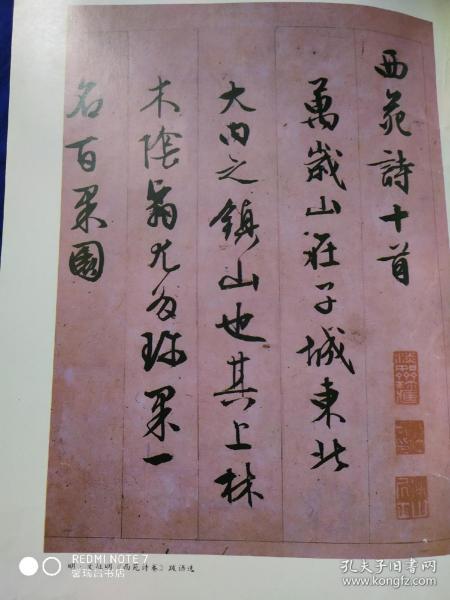 西苑詩十首
萬歲山在子城東北
大内之鎮山也其上林
木陰翳尤多珍果一
名百果園
明·文征明《西苑诗卷》跋语选
REDMI NOTE 7
孔夫子旧书网